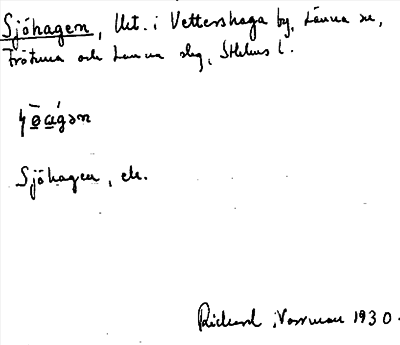 Sjöhagen, Utt. i Vettershaga by, Länna sn,
Frötuna och Länna slg, Sthlms l.
Sjöhagen, ek.
Richard Norrman 1930.